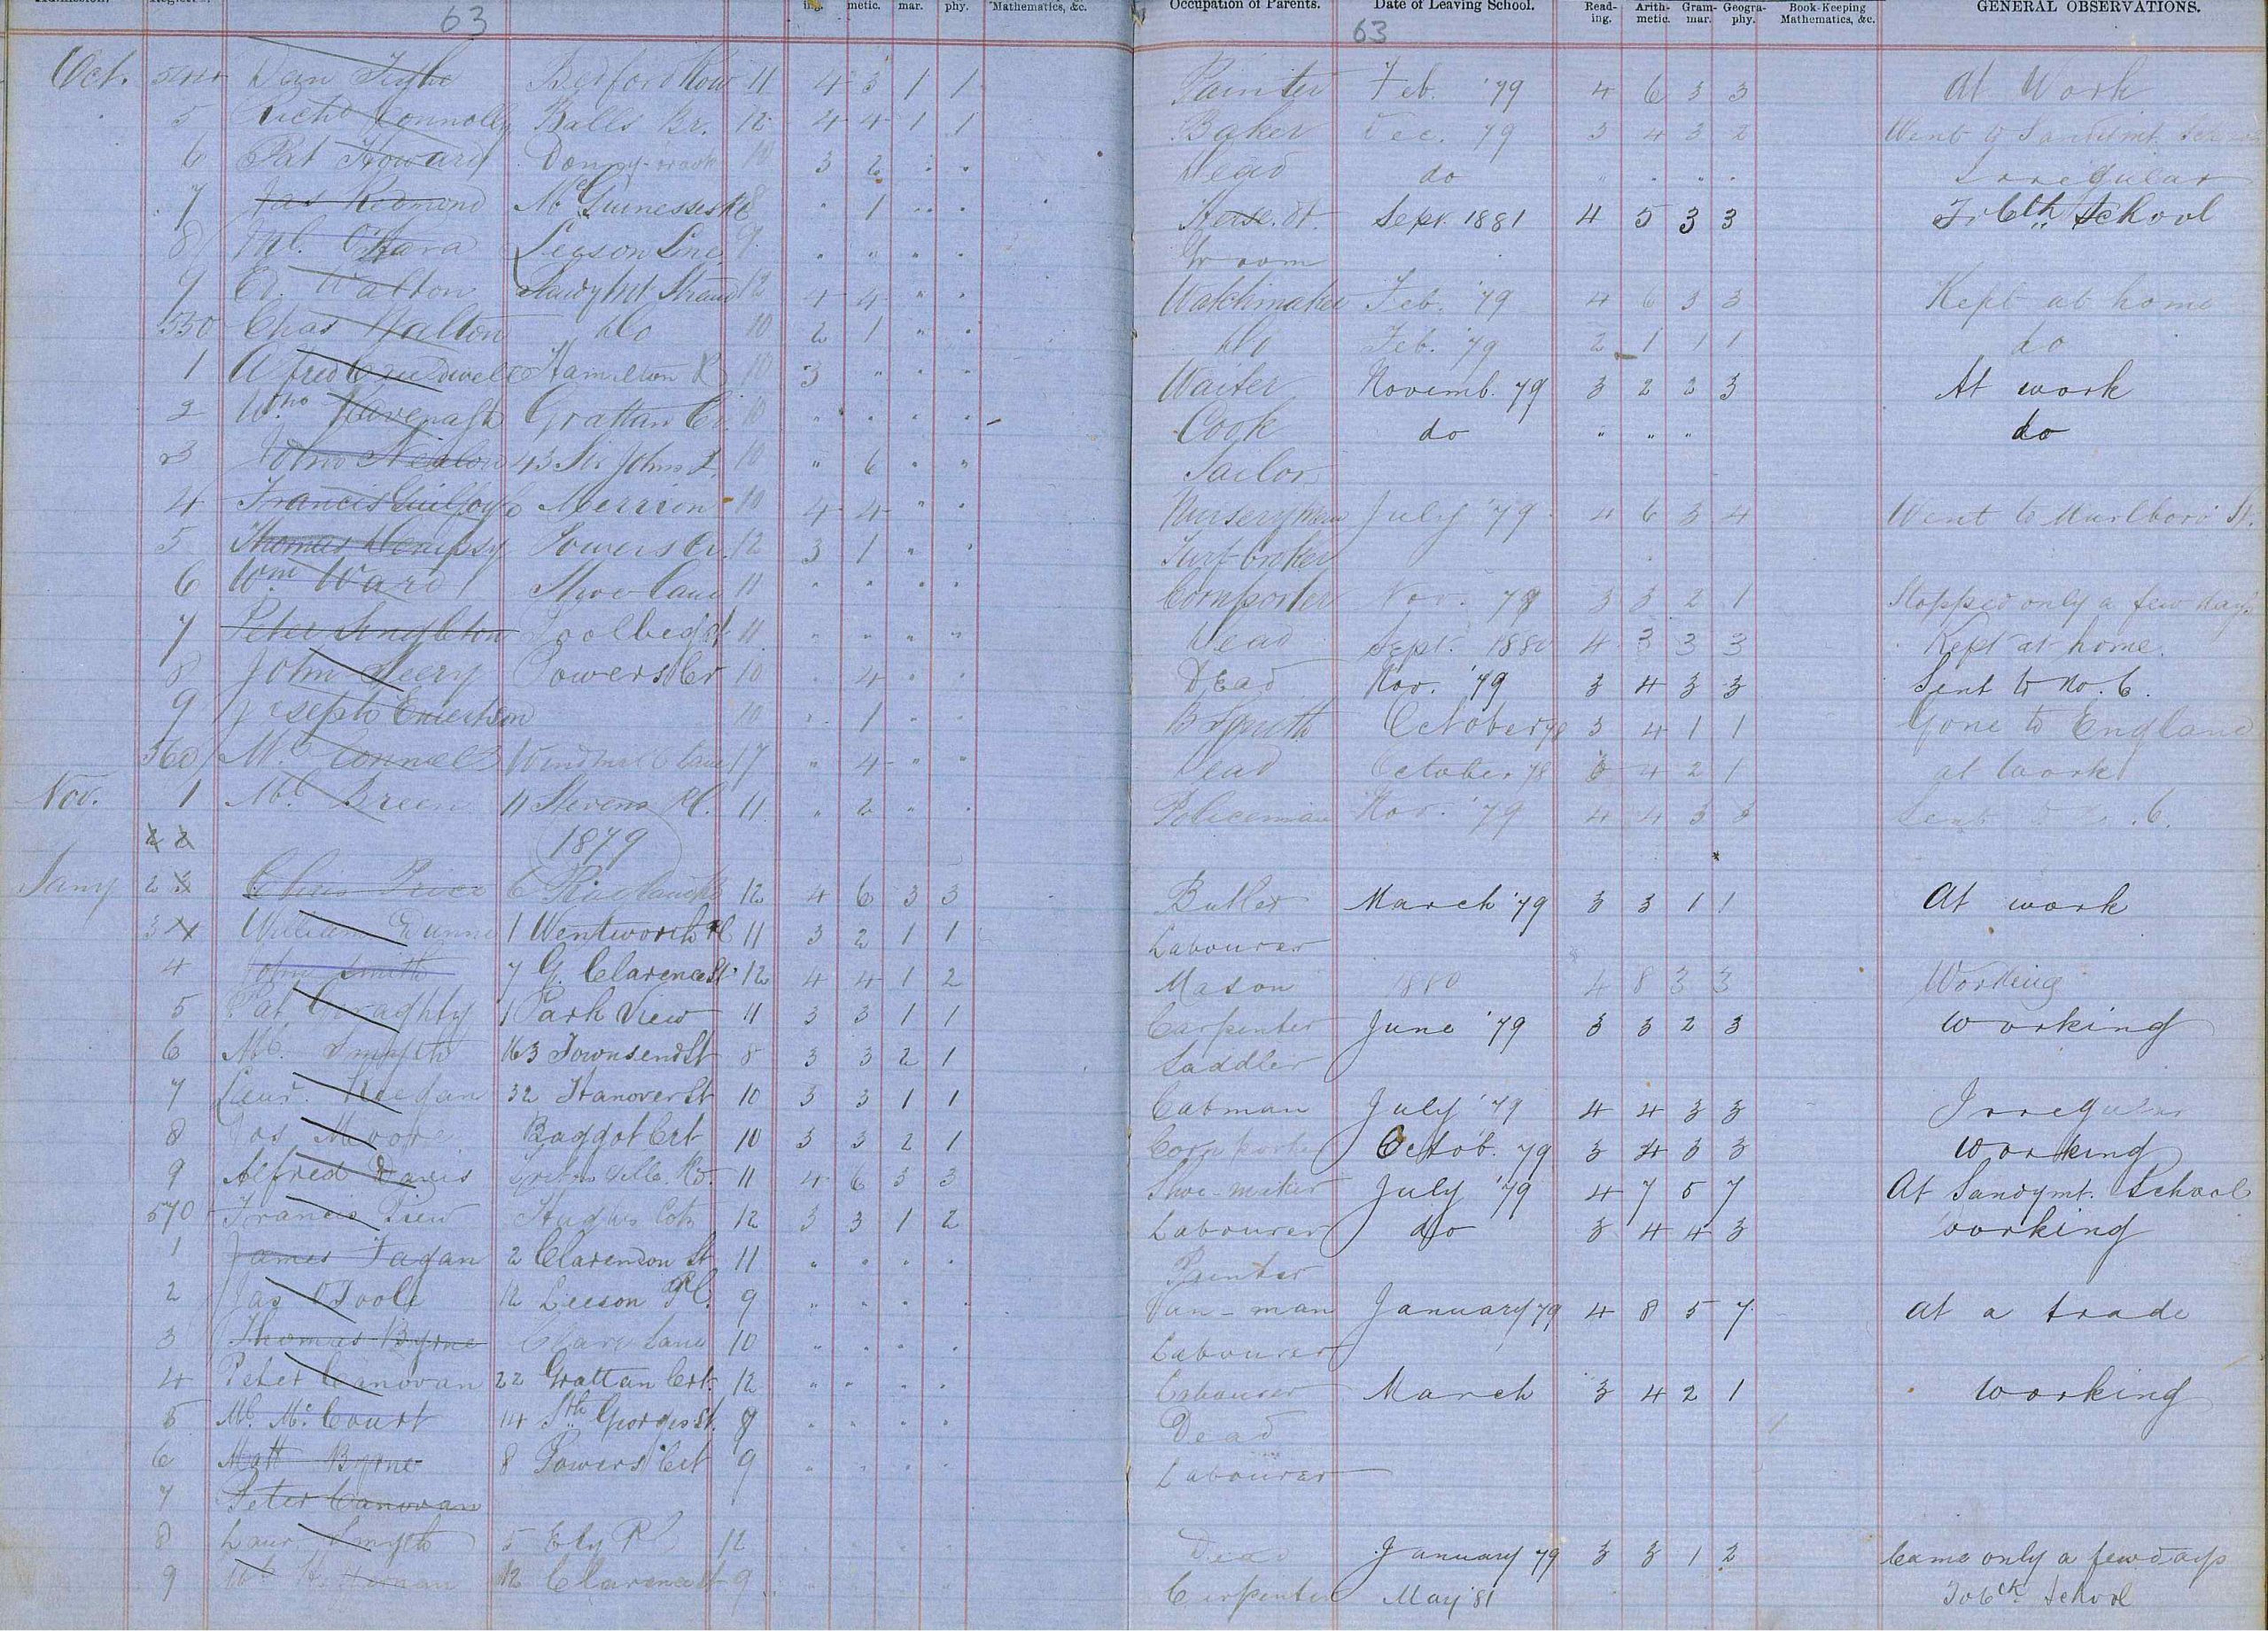 63 63
metic. mar. phy. Mathematics, &c. Occupation of Parents. Date of Leaving School. Read-ing. Arith-metic. Gram-mar. Geogra-phy. Book-Keeping Mathematics, &c. GENERAL OBSERVATIONS.
Oct. Dan Bedford Row 11 4 3 1 1 Painter Feb. '79 4 6 3 3 At Work
5 Richd Connolly Balls Br. 12 4 4 1 1 Baker Dec. 79 3 4 3 2 Went to Sandymt.
6 Pat Howard Donny-brook 10 3 2 Dead do Irregular
7 Jas Redmond 8 1 Sept. 1881 4 5 3 3 To 6th School
8 Ml. O'Hara Leeson Line 9 Groom
9 Ed. Walton Sandymt Strand 12 4 4 Watchmaker Feb. '79 4 6 3 3 Kept at home
530 Chas Walton Do 10 2 1 Do Feb. '79 2 1 1 1 do
1 Alfred Hamilton R 10 3 Waiter Novemb. 79 3 2 2 3 At work
2 Wm Kavenagh Grattan Ct. 10 Cook do " " " do
3 John 43 Sir Johns 10 " 6 " " Sailor
4 Francis Guilfoyle Merrion 10 4 4 Nurseryman July '79 4 6 3 4 Went to Marlboro' St.
5 Thomas Dempsy Powers Ct. 12 3 1 Turf broker
6 Wm Ward Shoe Lane 11 Cornporter Nov. 79 3 3 2 1 Stopped only a few days
7 Peter Singleton 11 Dead Sept. 1880 4 3 3 3 Kept at home.
8 John Powers Ct 10 4 Dead Nov. '79 3 4 3 3 Sent to No. 6.
9 Joseph Emertson 10 1 B Smith October 3 4 1 1 Gone to England
560 Ml. Connell Windmill Lane 4 Dead October 78 4 2 1 at work
Nov. 1 Ml. Breen 11 Stevens Pl. 11 2 Policeman Nov. '79 4 4 3 3 Sent to No. 6.
2 2 1879
Jany 2 Chris Price 12 4 6 3 3 Butler March '79 3 3 1 1 At work
3 William Dunne 1 Wentworth Pl 11 3 2 1 1 Labourer
4 John Smith 7 G. Clarence St 12 4 4 1 2 Mason 1880 4 8 3 3 Working
5 Pat Geraghty 1 Park View 11 3 3 1 1 Carpenter June '79 3 3 2 3 working
6 Ml. Smyth 163 Townsend St 8 3 3 2 1 Saddler
7 Laur. Keegan 32 Hanover St 10 3 3 1 1 Cabman July '79 4 4 3 3 Irregular
8 Jos Moore Baggot Crt 10 3 3 2 1 Corn porter Octob. 79 3 4 3 3 working
9 Alfred Davis Rd. 11 4 6 3 3 Shoe-maker July '79 4 7 5 7 At Sandymt. School
570 Francis 12 3 3 1 2 Labourer do 3 4 4 3 working
1 James Fagan 2 Clarendon St 11 Painter
2 Jas O'Toole 12 Leeson Pl. 9 Van-man January 79 4 8 5 7 at a trade
3 Thomas Byrne Clare Lane 10 Labourer
4 Peter Canovan 22 Grattan Crt. 12 Labourer March 3 4 2 1 working
5 Ml. McCourt 14 Sth Georges St. 9 Dead
6 Matt Byrne 8 Powers Crt 9 Labourer
7 Peter Canovan
8 Laur. Smyth 5 Ely Pl 12 Dead January 79 3 3 1 2 Came only a few days
9 Ml Heffernan 12 Clarence St 9 Carpenter May '81 To 6th School